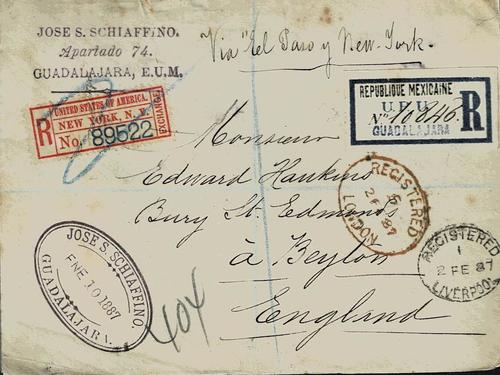 JOSE S. SCHIAFFINO.
Apartado 74.
GUADALAJARA, E.U.M.
Via "El Paso y New-York.
UNITED STATES OF AMERICA.
R
NEW YORK, N.Y.
No. 89522
EXCHANGE
REPUBLIQUE MEXICAINE
U.P.U.
Nº 10646
GUADALAJARA
R
Monsieur
Edward Hawkins
Bury St. Edmonds
à Beyton
England
REGISTERED
2 FE 87
LONDON
REGISTERED
1
2 FE 87
LIVERPOOL
JOSE S. SCHIAFFINO.
ENE 10 1887
GUADALAJARA.
404